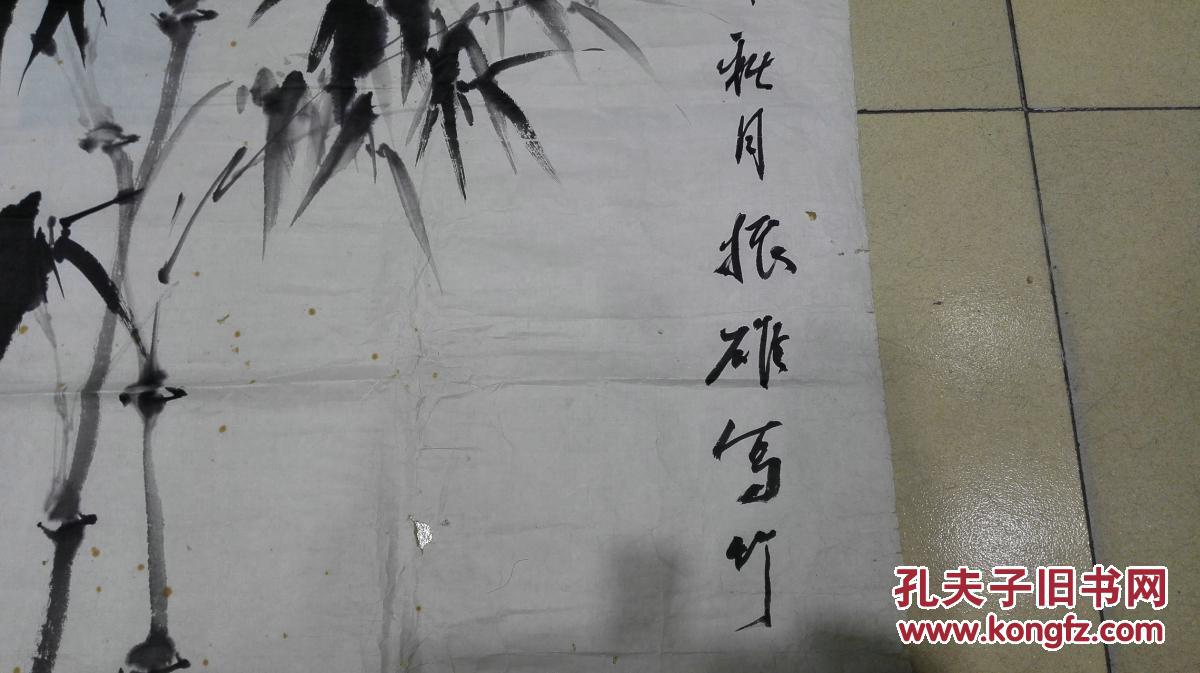 秋月振雄写竹
孔夫子旧书网
www.kongfz.com